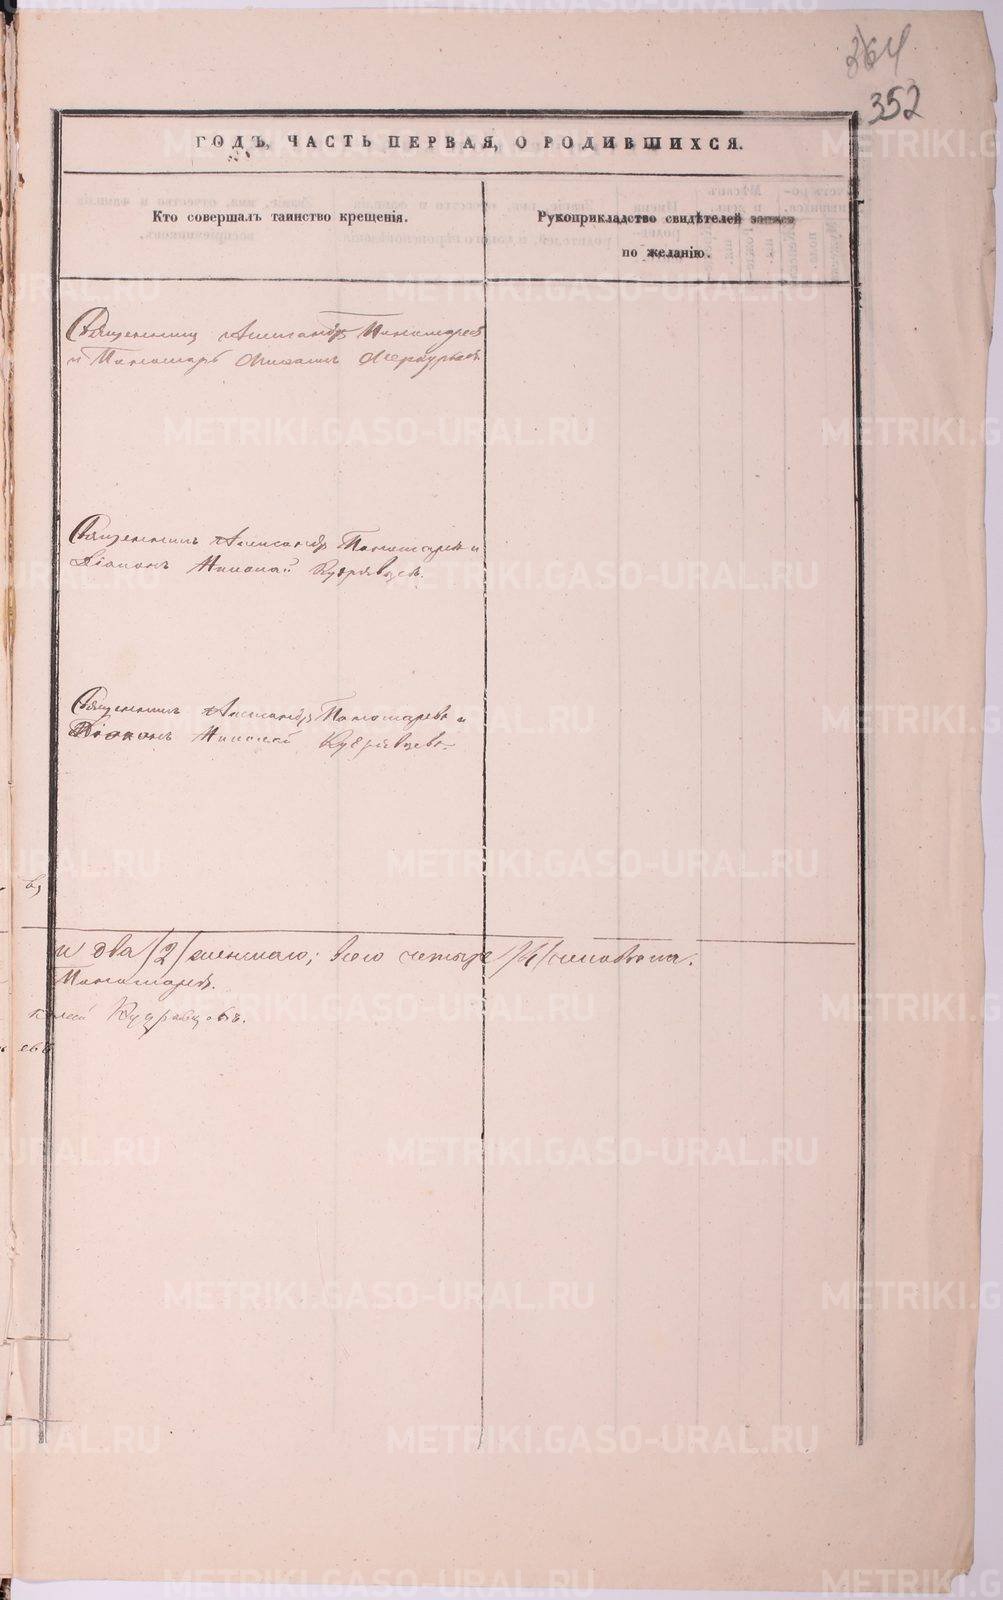 364
352
ГОДЪ, ЧАСТЬ ПЕРВАЯ, О РОДИВШИХСЯ.
Кто совершалъ таинство крещенія.
Рукоприкладство свидѣтелей записи
по желанію.
Священникъ Александръ Пономаревъ
и Пономарь Михаилъ Меркурьевъ
Священникъ Александръ Пономаревъ и
Діаконъ Николай Кудрявцевъ.
Священникъ Александръ Пономаревъ и
Діаконъ Николай Кудрявцевъ.
и два /2/ женскаго; всего четыре /4/ человѣка.
Пономаревъ.
колай Кудрявцовъ.
METRIKI.GASO-URAL.RU